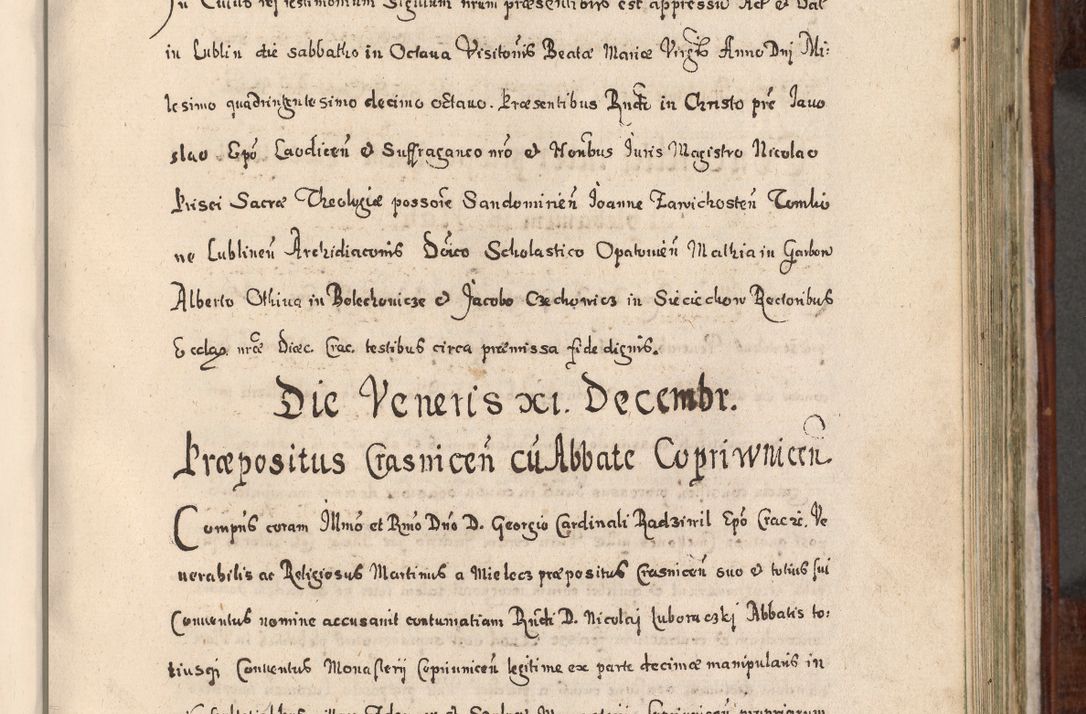 in Lublin die sabbatho in Octava Visitonis Beatæ Mariæ Virgis Anno Dnj Mi:
lesimo quadringentesimo decimo octavo. Præsentibus Rndi in Christo pre Jaro
slao Epo Laodiceñ & Suffraganeo nro & Honbus Juris Magistro Nicolao
Prisci Sacræ Theologiæ possore Sandomirieñ Joanne Zavichosteñ Tomlio
ne Lublineñ Archidiaconis Dnico Scholastico Opatovieñ Mathia in Garbow
Alberto Othiua in Bolechowicze & Jacobo Czchowicz in Siecięchow Rectoribus
Ecclar. nræ Diæc. Crac. testibus circa præmissa fide dignis.
Die Veneris xi. Decembr.
Præpositus Crasniceñ cū Abbate Copriwniceñ.
Compns coram Illmo et Rmo Dno D. Georgio Cardinali Radziwil Epo Crac. Ve
nerabilis ac Religiosus Martinus a Mielecz præpositus Crasniceñ suo & totius sui
Conventus nomine accusavit contumatiam Rndi D. Nicolaj Luboraczkj Abbatis to:
tiusqi Conventus Monasterij Copriuniceñ legitime ex parte decimæ manipularis in